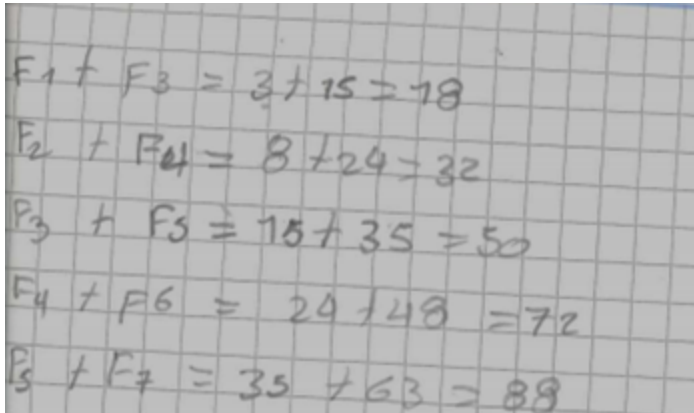 F1 + F3 = 3 + 15 = 18
F2 + F4 = 8 + 24 = 32
F3 + F5 = 15 + 35 = 50
F4 + F6 = 24 + 48 = 72
F5 + F7 = 35 + 63 = 88